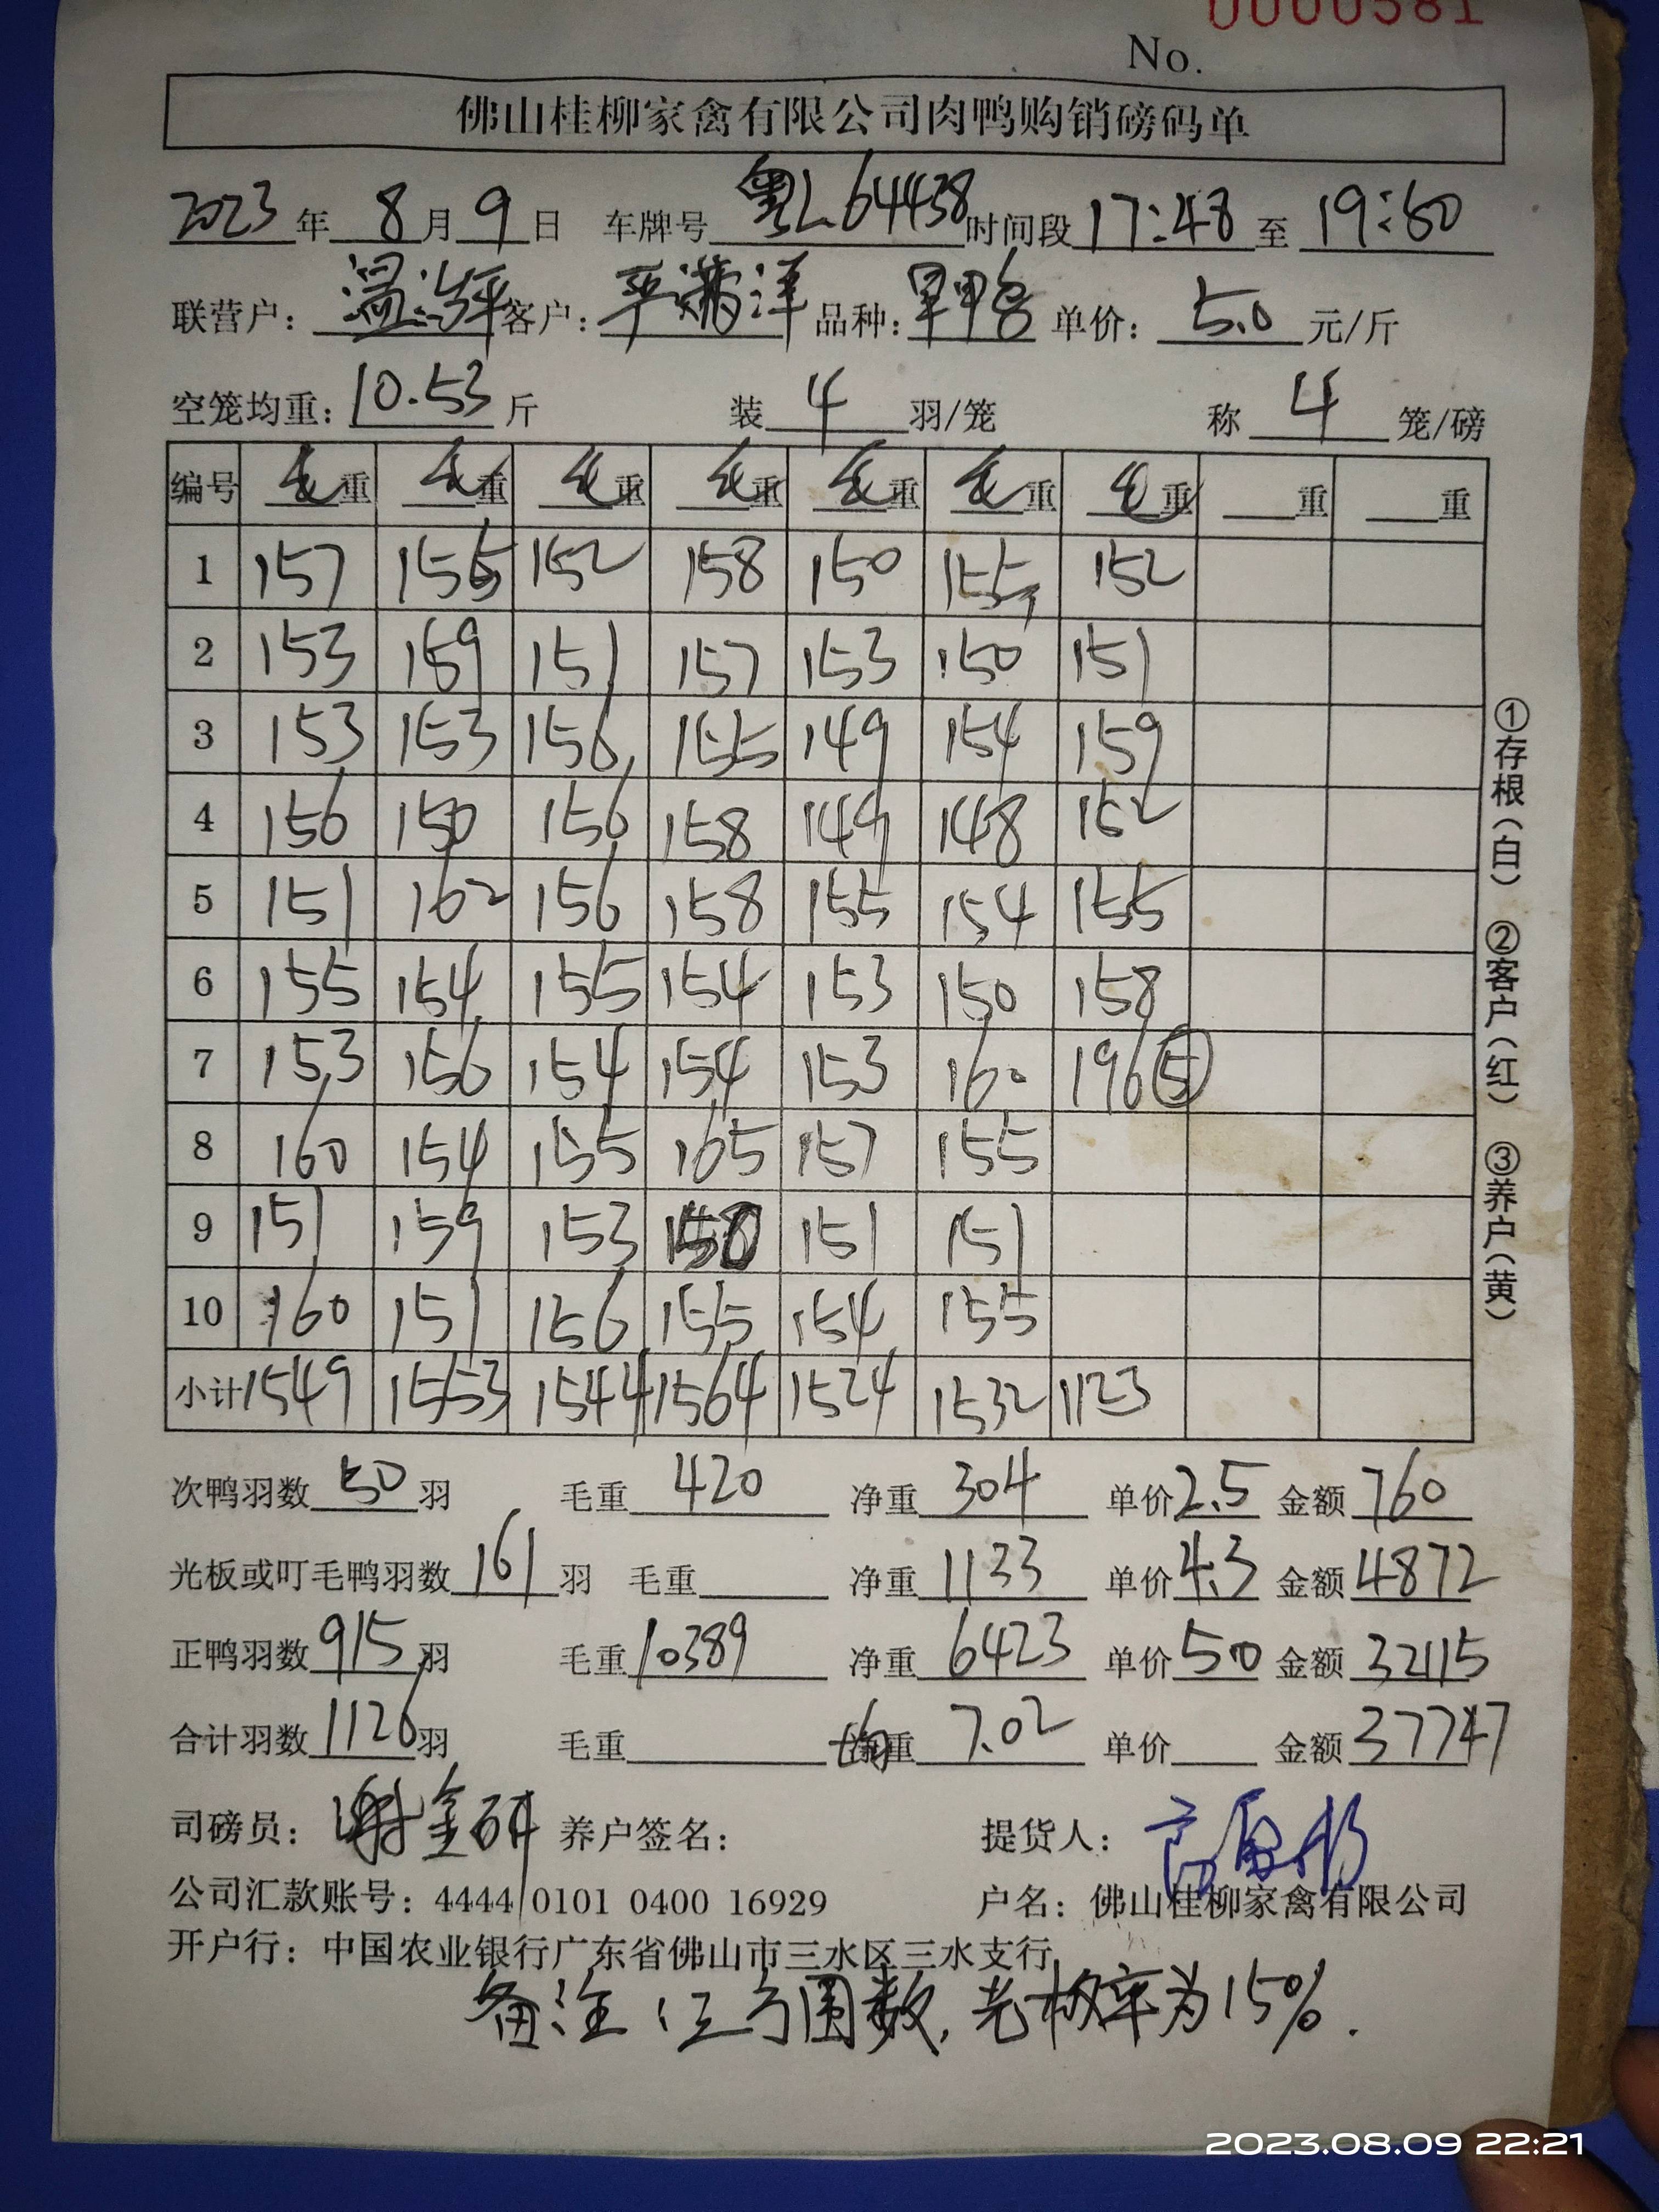 0000581
No.
佛山桂柳家禽有限公司肉鸭购销磅码单
2023年 8月 9日 车牌号 粤L64438 时间段 17:48 至 19:50
联营户: 温 客户: 满洋 品种: 单价: 5.0 元/斤
空笼均重: 10.53 斤 装 4 羽/笼 称 4 笼/磅
编号 毛重 毛重 毛重 毛重 毛重 毛重 毛重 重 重
1 157 155 152 158 150 155 152
2 153 159 151 157 153 150 151
3 153 153 156 155 149 154 159
4 156 150 156 158 149 148 152
5 151 162 156 158 155 154 155
6 155 154 155 154 153 150 158
7 153 156 154 154 153 160 196⑤
8 160 154 155 165 157 155
9 151 159 153 150 151 151
10 160 151 156 155 154 155
小计 1549 1553 1544 1564 1524 1532 1123
次鸭羽数 50 羽 毛重 420 净重 304 单价 2.5 金额 760
光板或叮毛鸭羽数 161 羽 毛重 净重 1133 单价 4.3 金额 4872
正鸭羽数 915 羽 毛重 10389 净重 6423 单价 5.0 金额 32115
合计羽数 1126 羽 毛重 均重 7.02 单价 金额 37747
司磅员: 谢金研 养户签名: 提货人:
公司汇款账号: 4444 0101 0400 16929 户名: 佛山桂柳家禽有限公司
开户行: 中国农业银行广东省佛山市三水区三水支行
备注: 数,光板率为15%.
①存根(白) ②客户(红) ③养户(黄)
2023.08.09 22:21